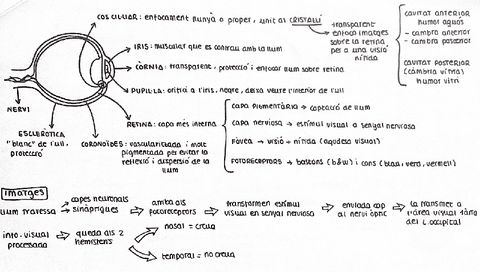 COS CILIAR: enfocament llunyà o proper, unit al CRISTAL·LÍ
transparent
enfoca imatges
sobre la retina
per a una visió
nítida
CAVITAT ANTERIOR
humor aquós
- cambra anterior
- cambra posterior
CAVITAT POSTERIOR
(càmbra vítria)
humor vitri
IRIS: muscular que es contrau amb la llum
CÒRNIA: transparent, protecció i enfocar llum sobre retina
PUPIL·LA: orifici a l'iris, negre, deixa veure l'interior de l'ull
NERVI
RETINA: capa més interna
CAPA PIGMENTÀRIA → captació de llum
CAPA nerviosa → estímul visual a senyal nerviosa
FÒVEA → visió + nítida (agudesa visual)
FOTORECEPTORS → bastons (b&w) i cons (blau, verd, vermell)
ESCLERÒTICA
"blanc" de l'ull,
protecció
COROÏDES: vascularitzada i molt
pigmentada per evitar la
reflexió i dispersió de la
llum
IMATGES
llum travessa → capes neuronals
sinàptiques → arriba als
fotoreceptors → transformen estímul
visual en senyal nerviosa → enviada cap
al nervi òptic → la transmet a
l'àrea visual 1ària
del l. occipital
info. visual
processada → queda als 2
hemisferis
nasal → creua
temporal → no creua